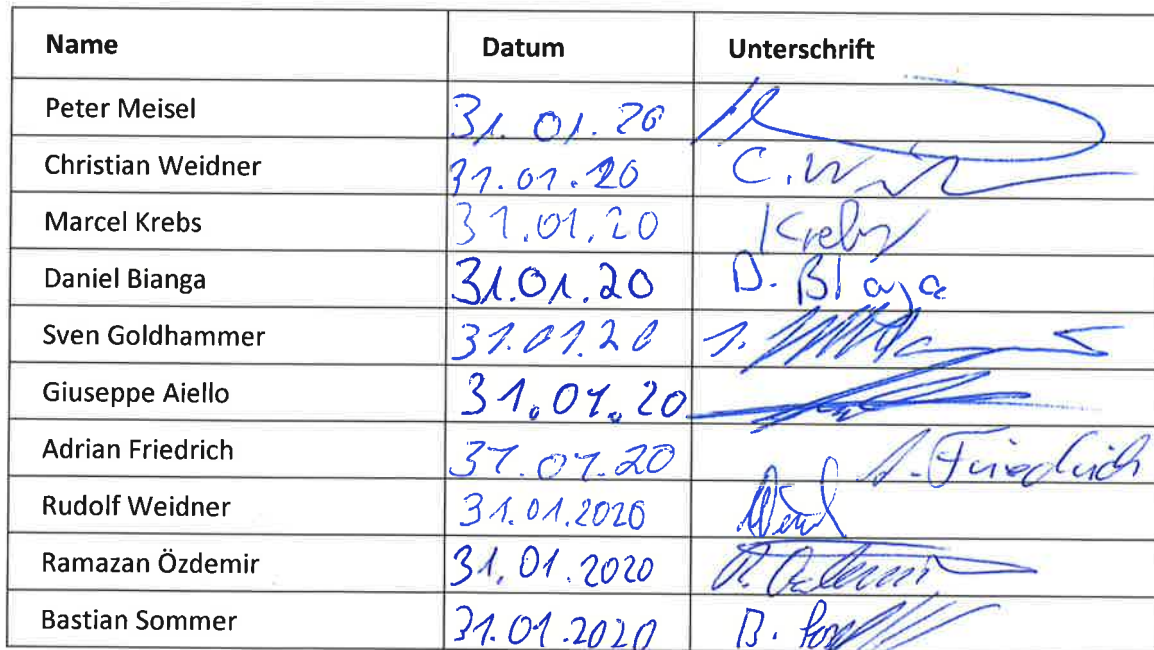 Name Datum Unterschrift
Peter Meisel 31.01.20
Christian Weidner 31.01.20 C. W
Marcel Krebs 31.01.20 Krebs
Daniel Bianga 31.01.20 D. Bianga
Sven Goldhammer 31.01.20
Giuseppe Aiello 31.01.20
Adrian Friedrich 31.01.20 A. Friedrich
Rudolf Weidner 31.01.2020
Ramazan Özdemir 31.01.2020 R. Özdemir
Bastian Sommer 31.01.2020 B.